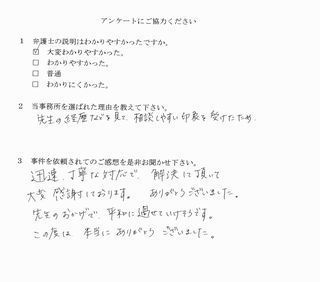 アンケートにご協力ください
1 弁護士の説明はわかりやすかったですか。
☑ 大変わかりやすかった。
□ わかりやすかった。
□ 普通
□ わかりにくかった。
2 当事務所を選ばれた理由を教えて下さい。
先生の経歴などを見て、相談しやすい印象を受けたため。
3 事件を依頼されてのご感想を是非お聞かせ下さい。
迅速、丁寧な対応で、解決に頂いて
大変感謝しております。ありがとうございました。
先生のおかげで、平和に過せていけそうです。
この度は、本当にありがとうございました。